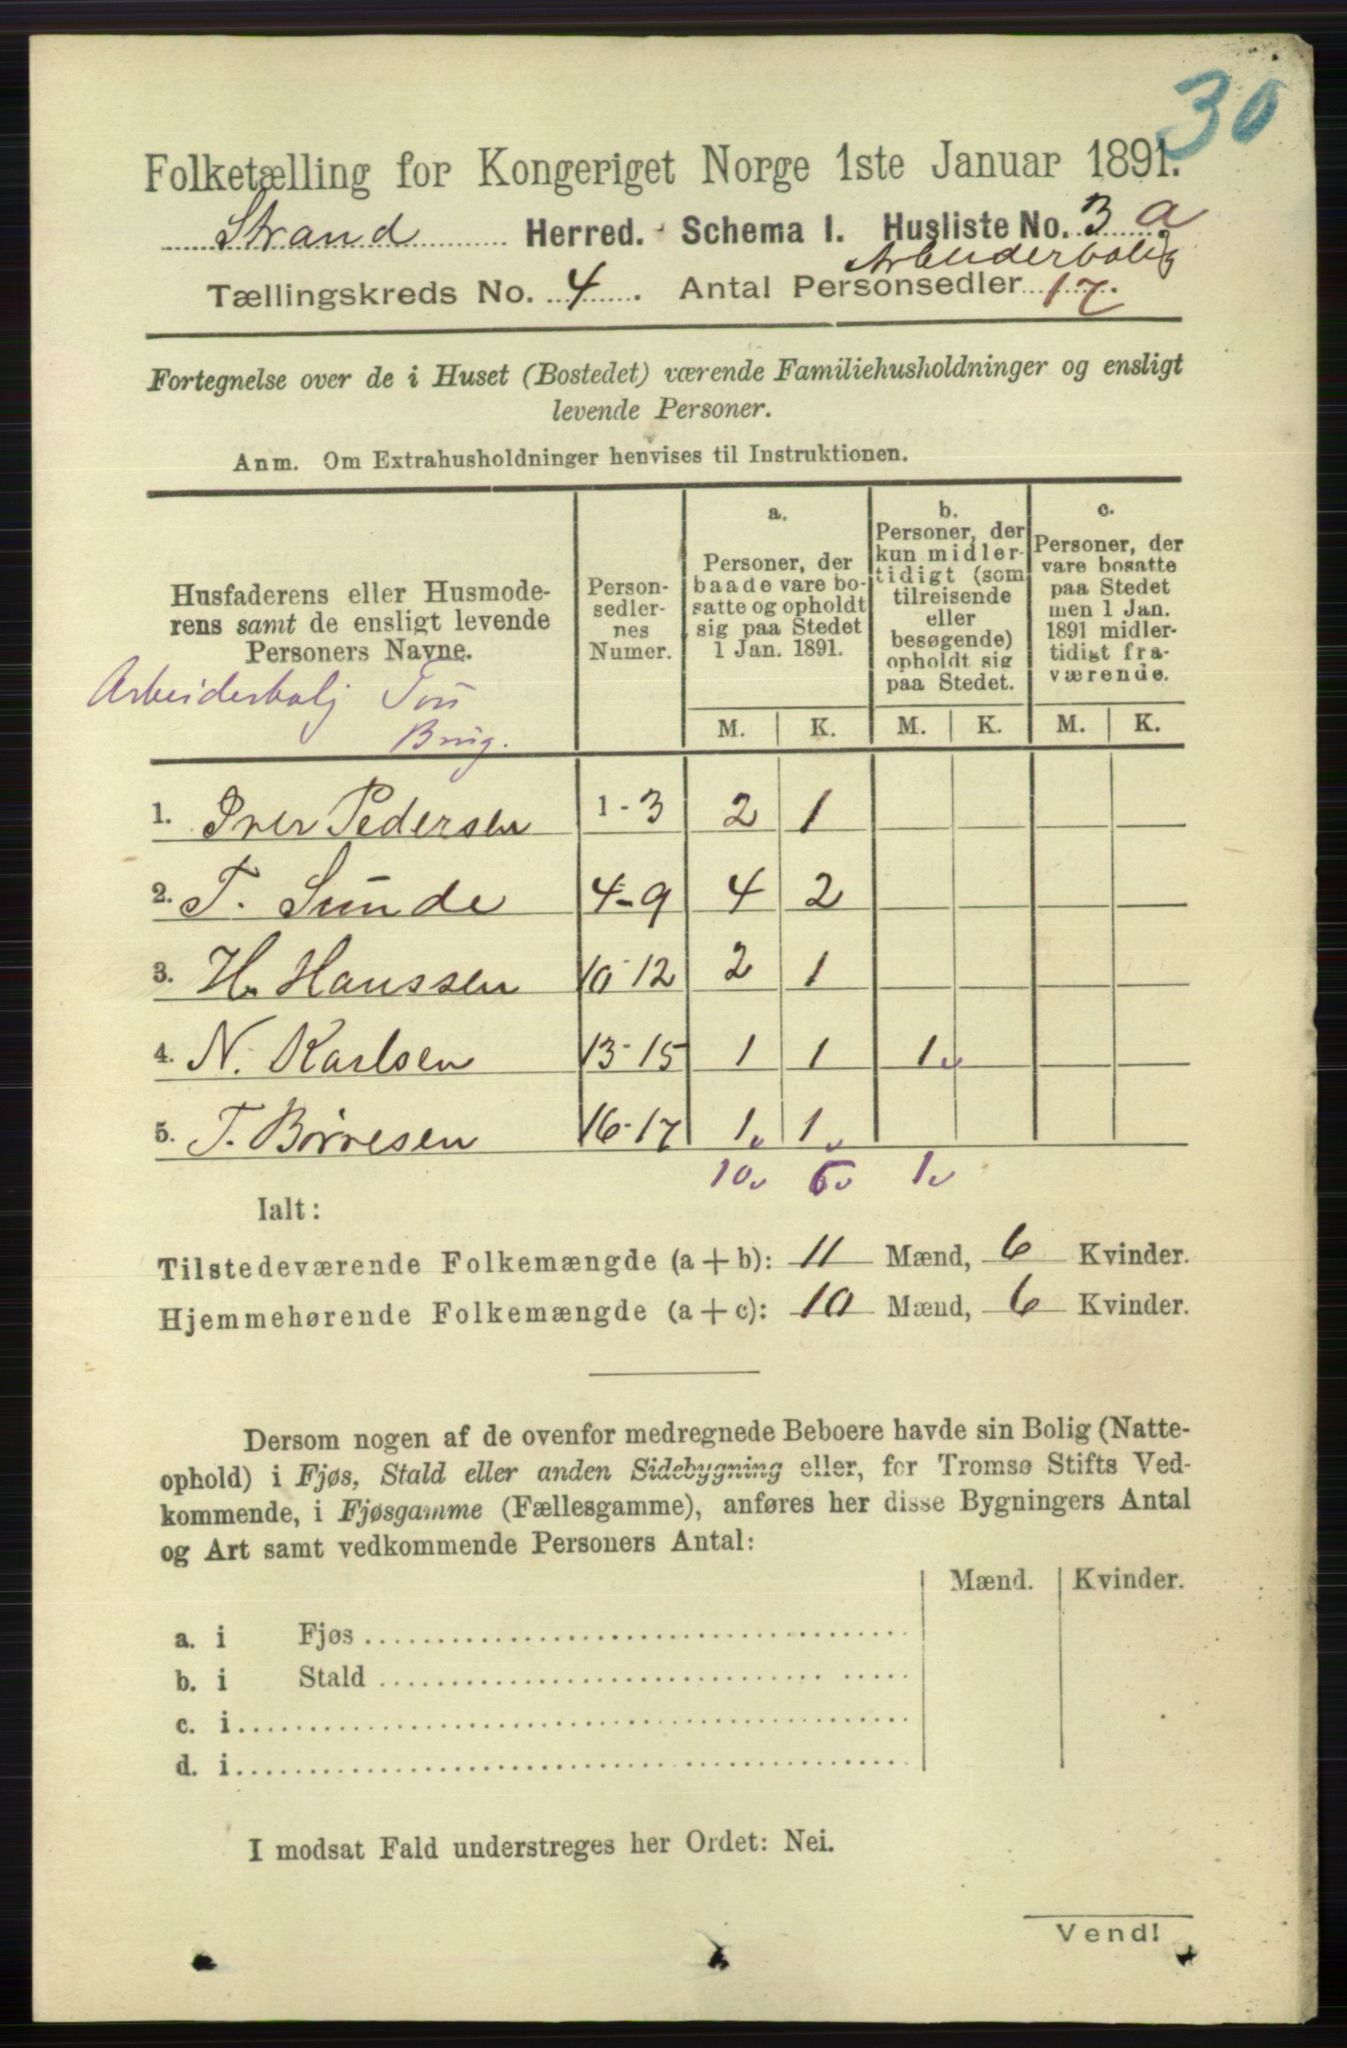 30
Folketælling for Kongeriget Norge 1ste Januar 1891.
Strand Herred. Schema I. Husliste No. 3 a
Arbeiderbolig
Tællingskreds No. 4. Antal Personsedler 17.
Fortegnelse over de i Huset (Bostedet) værende Familiehusholdninger og ensligt
levende Personer.
Anm. Om Extrahusholdninger henvises til Instruktionen.
Husfaderens eller Husmode-
rens samt de ensligt levende
Personers Navne.
Arbeiderbolj Tou
Brug.
Person-
sedler-
nes
Numer.
a.
Personer, der
baade vare bo-
satte og opholdt
sig paa Stedet
1 Jan. 1891.
M. K.
b.
Personer, der
kun midler-
tidigt (som
tilreisende
eller
besøgende)
opholdt sig
paa Stedet.
M. K.
c.
Personer, der
vare bosatte
paa Stedet
men 1 Jan.
1891 midler-
tidigt fra-
værende.
M. K.
1. Iver Pedersen 1-3 2 1
2. T. Sunde 4-9 4 2
3. H. Hanssen 10-12 2 1
4. N. Karlsen 13-15 1 1 1
5. T. Börresen 16-17 1 1
10 6 1
Ialt:
Tilstedeværende Folkemængde (a+b): 11 Mænd, 6 Kvinder.
Hjemmehørende Folkemængde (a+c): 10 Mænd, 6 Kvinder.
Dersom nogen af de ovenfor medregnede Beboere havde sin Bolig (Natte-
ophold) i Fjøs, Stald eller anden Sidebygning eller, for Tromsø Stifts Ved-
kommende, i Fjøsgamme (Fællesgamme), anføres her disse Bygningers Antal
og Art samt vedkommende Personers Antal:
Mænd. Kvinder.
a. i Fjøs
b. i Stald
c. i
d. i
I modsat Fald understreges her Ordet: Nei.
Vend!